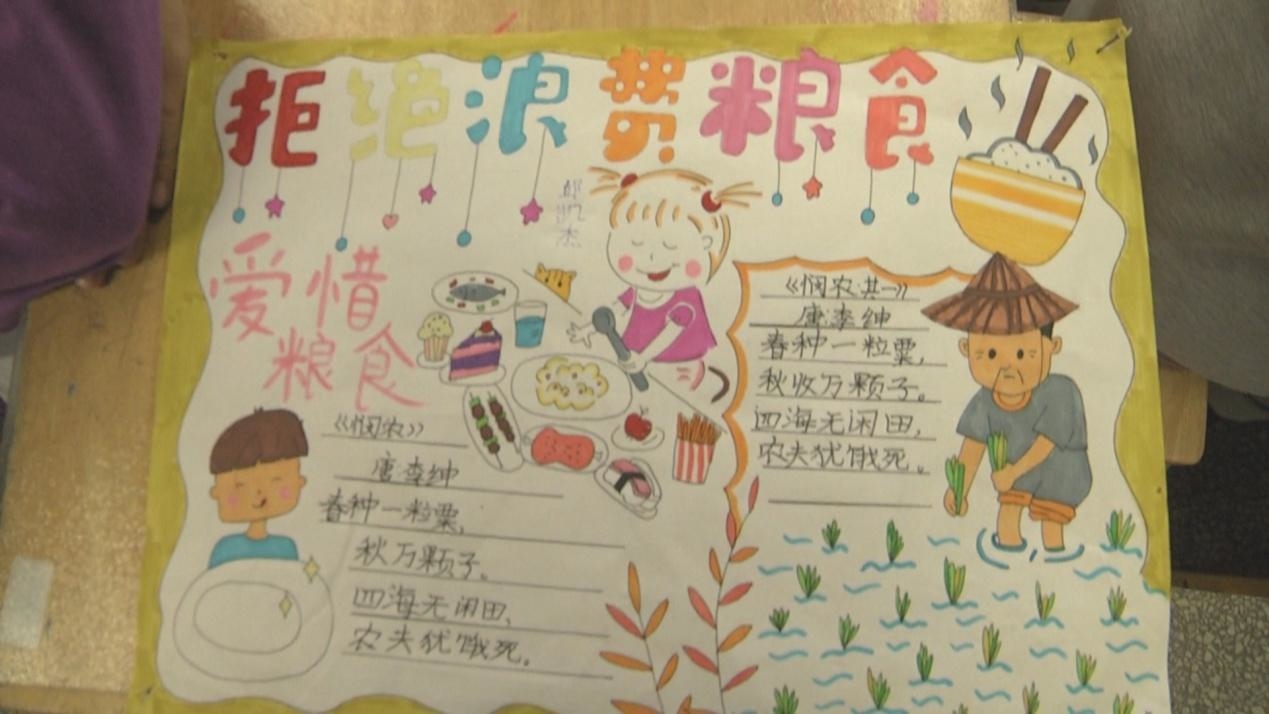 拒绝浪费粮食
邱凯杰
爱惜
粮食
《悯农》
唐李绅
春种一粒粟,
秋万颗子。
四海无闲田,
农夫犹饿死。
《悯农其一》
唐李绅
春种一粒粟,
秋收万颗子。
四海无闲田,
农夫犹饿死。